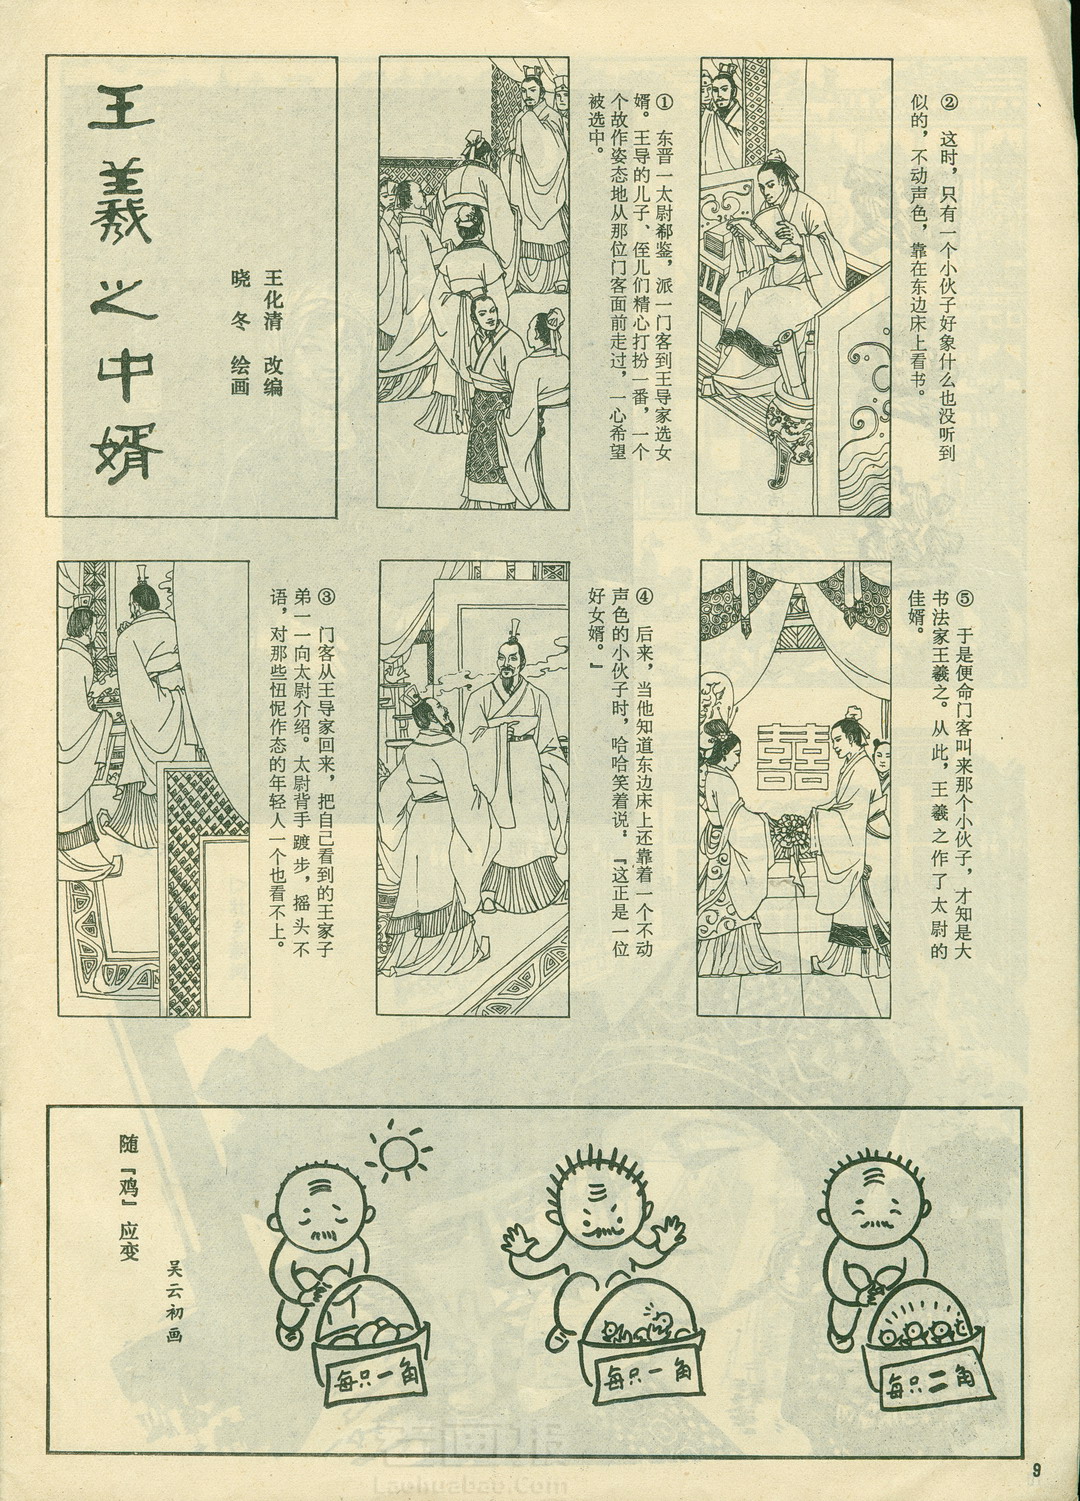 王羲之中婿
王化清 改编
晓冬 绘画
① 东晋一太尉郗鉴，派一门客到王导家选女
婿。王导的儿子、侄儿们精心打扮一番，一个
个故作姿态地从那位门客面前走过，一心希望
被选中。
② 这时，只有一个小伙子好象什么也没听到
似的，不动声色，靠在东边床上看书。
③ 门客从王导家回来，把自己看到的王家子
弟一一向太尉介绍。太尉背手踱步，摇头不
语，对那些忸怩作态的年轻人一个也看不上。
④ 后来，当他知道东边床上还靠着一个不动
声色的小伙子时，哈哈笑着说：『这正是一位
好女婿。』
⑤ 于是便命门客叫来那个小伙子，才知是大
书法家王羲之。从此，王羲之作了太尉的
佳婿。
随『鸡』应变
吴云初画
每只一角
每只一角
每只二角
老画报
Laohuabao.Com
9